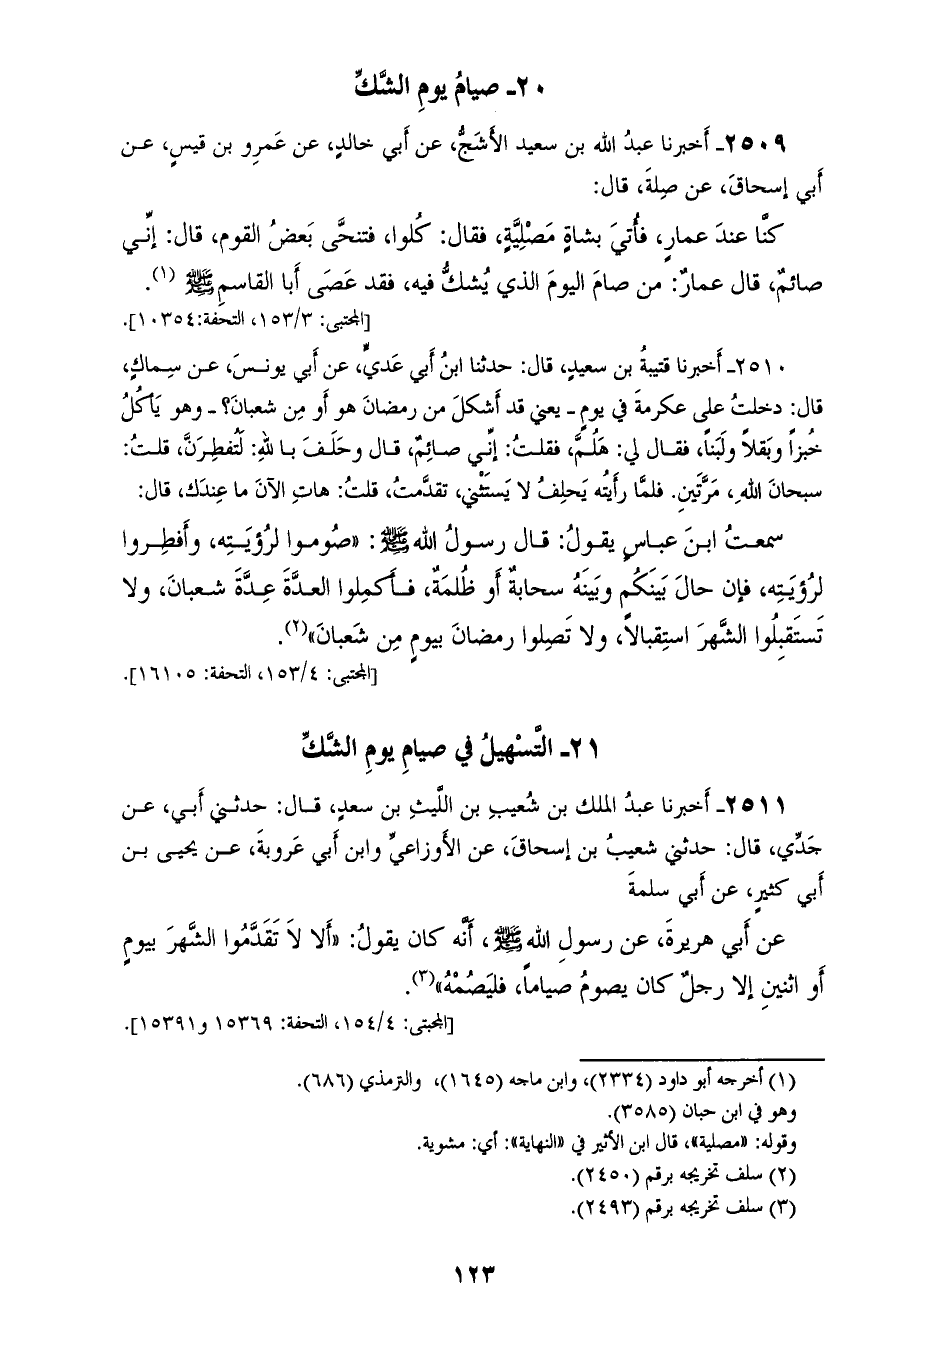 ٢٠ـ صيامُ يومِ الشَّكِّ
٢٥٠٩ـ أَخبرنا عبدُ الله بن سعيد الأَشجُّ، عن أَبي خالدٍ، عن عَمرِو بن قيسٍ، عـن
أَبي إسحاقَ، عن صِلةَ، قال:
كنَّا عندَ عمارٍ، فأُتيَ بشاةٍ مَصْلِيَّةٍ، فقال: كُلوا، فتنحَّى بَعضُ القوم، قال: إنِّـي
صائمٌ، قال عمارٌ: من صامَ اليومَ الذي يُشكُّ فيه، فقد عَصَى أَبا القاسمِ ﷺ (١).
[المجتبى: ١٥٣/٣، التحفة:١٠٣٥٤].
٢٥١٠ـ أَخبرنا قتيبةُ بن سعيدٍ، قال: حدثنا ابنُ أَبي عَديٍّ، عن أَبي يونـسَ، عـن سِـماكٍ،
قال: دخلتُ على عكرمةَ في يومٍ ـ يعني قد أَشكلَ من رمضانَ هو أَو مِن شعبانَ؟ ـ وهو يَأكُلُ
خُبزاً وبَقلاً ولَبَناً، فقـال لي: هَلُـمَّ، فقلـتُ: إنِّـي صـائِمٌ، قـال وحَلَـفَ بـا للهِ: لَتُفطِـرَنَّ، قلـتُ:
سبحانَ اللهِ، مَرَّتَينِ. فلمَّا رأَيتُه يَحلِفُ لا يَستَثْني، تقدَّمتُ، قلتُ: هاتِ الآنَ ما عِندَك، قال:
سمعـتُ ابـنَ عبـاسٍ يقـولُ: قـال رسـولُ اللهﷺ: «صُومـوا لرُؤيَـتِه، وأَفطِـروا
لرُؤيَتِه، فإن حالَ بَينَكُم وبَينَهُ سحابةٌ أَو ظُلمَةٌ، فـأَكمِلوا العـدَّةَ عِـدَّةَ شـعبانَ، ولا
تَستَقبِلُوا الشَّهرَ استِقبالاً، ولا تَصِلوا رمضانَ بيومٍ مِن شَعبانَ»(٢).
[المجتبى: ١٥٣/٤، التحفة: ١٦١٠٥].
٢١ـ التَّسْهيلُ في صيامِ يومِ الشَّكِّ
٢٥١١ـ أَخبرنا عبدُ الملك بن شُعيبِ بن اللَّيثِ بن سعدٍ، قـال: حدثـني أَبـي، عـن
جَدِّي، قال: حدثني شعيبُ بن إسحاقَ، عن الأَوزاعيِّ وابن أَبي عَروبةَ، عـن يحيـى بـن
أَبي كثيرٍ، عن أَبي سلمةَ
عن أَبي هريرةَ، عن رسولِ اللهﷺ، أَنَّه كان يقولُ: «أَلا لاَ تَقَدَّمُوا الشَّهرَ بيومٍ
أَو اثنينِ إلا رجلٌ كان يصومُ صياماً، فليَصُمْهُ»(٣).
[المجتبى: ١٥٤/٤، التحفة: ١٥٣٦٩ و١٥٣٩١].
(١) أخرجه أبو داود (٢٣٣٤)، وابن ماجه (١٦٤٥)، والترمذي (٦٨٦).
وهو في ابن حبان (٣٥٨٥).
وقوله: «مصلية»، قال ابن الأثير في «النهاية»: أي: مشوية.
(٢) سلف تخريجه برقم (٢٤٥٠).
(٣) سلف تخريجه برقم (٢٤٩٣).
١٢٣